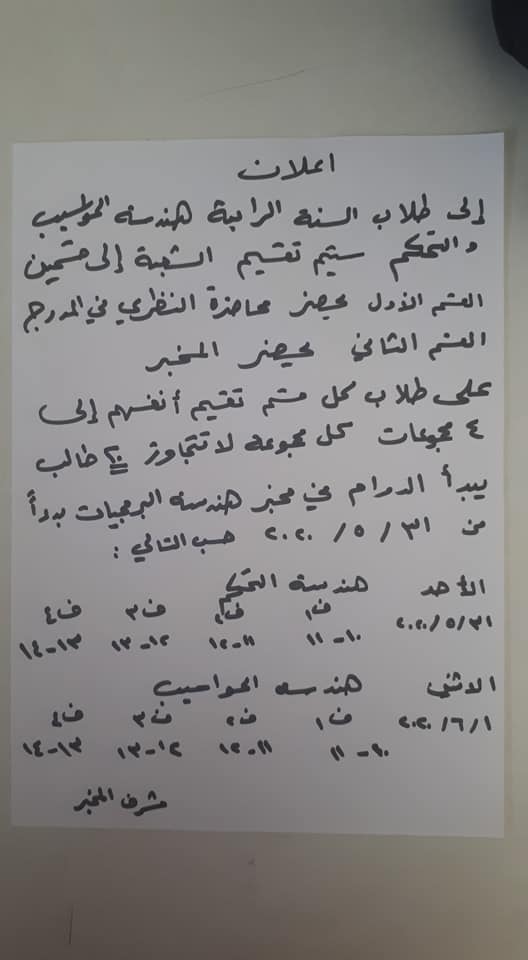 اعلان
إلى طلاب السنة الرابعة هندسة الحواسيب
والتحكم سيتم تقسيم الشعبة إلى قسمين
القسم الأول يحضر محاضرة النظري في المدرج
القسم الثاني يحضر المخبر
على طلاب كل قسم تقسيم أنفسهم إلى
٤ مجموعات كل مجموعة لا تتجاوز ٢٠ طالب
يبدأ الدوام في مخبر هندسة البرمجيات بدءاً
من ٣١ / ٥ / ٢٠٢٠ حسب التالي :
الأحد هندسة التحكم
٢٠٢٠/٥/٣١ ف١ ف٢ ف٣ ف٤
١٠-١١ ١١-١٢ ١٢-١٣ ١٣-١٤
الاثنين هندسة الحواسيب
٢٠٢٠/٦/١ ف١ ف٢ ف٣ ف٤
١٠-١١ ١١-١٢ ١٢-١٣ ١٣-١٤
مشرف المخبر